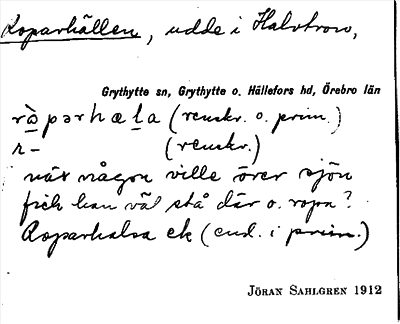 Roparhällen, udde i Halvtron,
Grythytte sn, Grythytte o. Hällefors hd, Örebro län
rò̀pərhæḻa (renskr. o. prim.)
r- (renskr.)
när någon ville över sjön
fick han väl stå där o. ropa?
Roparhalsa ek (end. i prim.)
JÖRAN SAHLGREN 1912